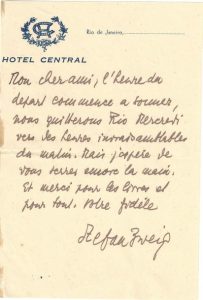 Rio de Janeiro,
HOTEL CENTRAL
Mon cher ami, l'heure du
depart commence a sonner,
nous quitterons Rio Mercredi
vers des heures invraisemblables
du matin. Mais j'espere de
vous serrer encore la main.
Et merci pour les livres et
pour tout. Votre fidèle
Stefan Zweig